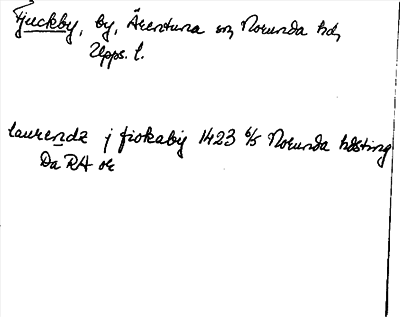 Fjuckby, by, Ärentuna sn, Norunda hd,
Upps. l.
laurende j fiokaby 1423 6/5 Norunda hdsting
Da RA or